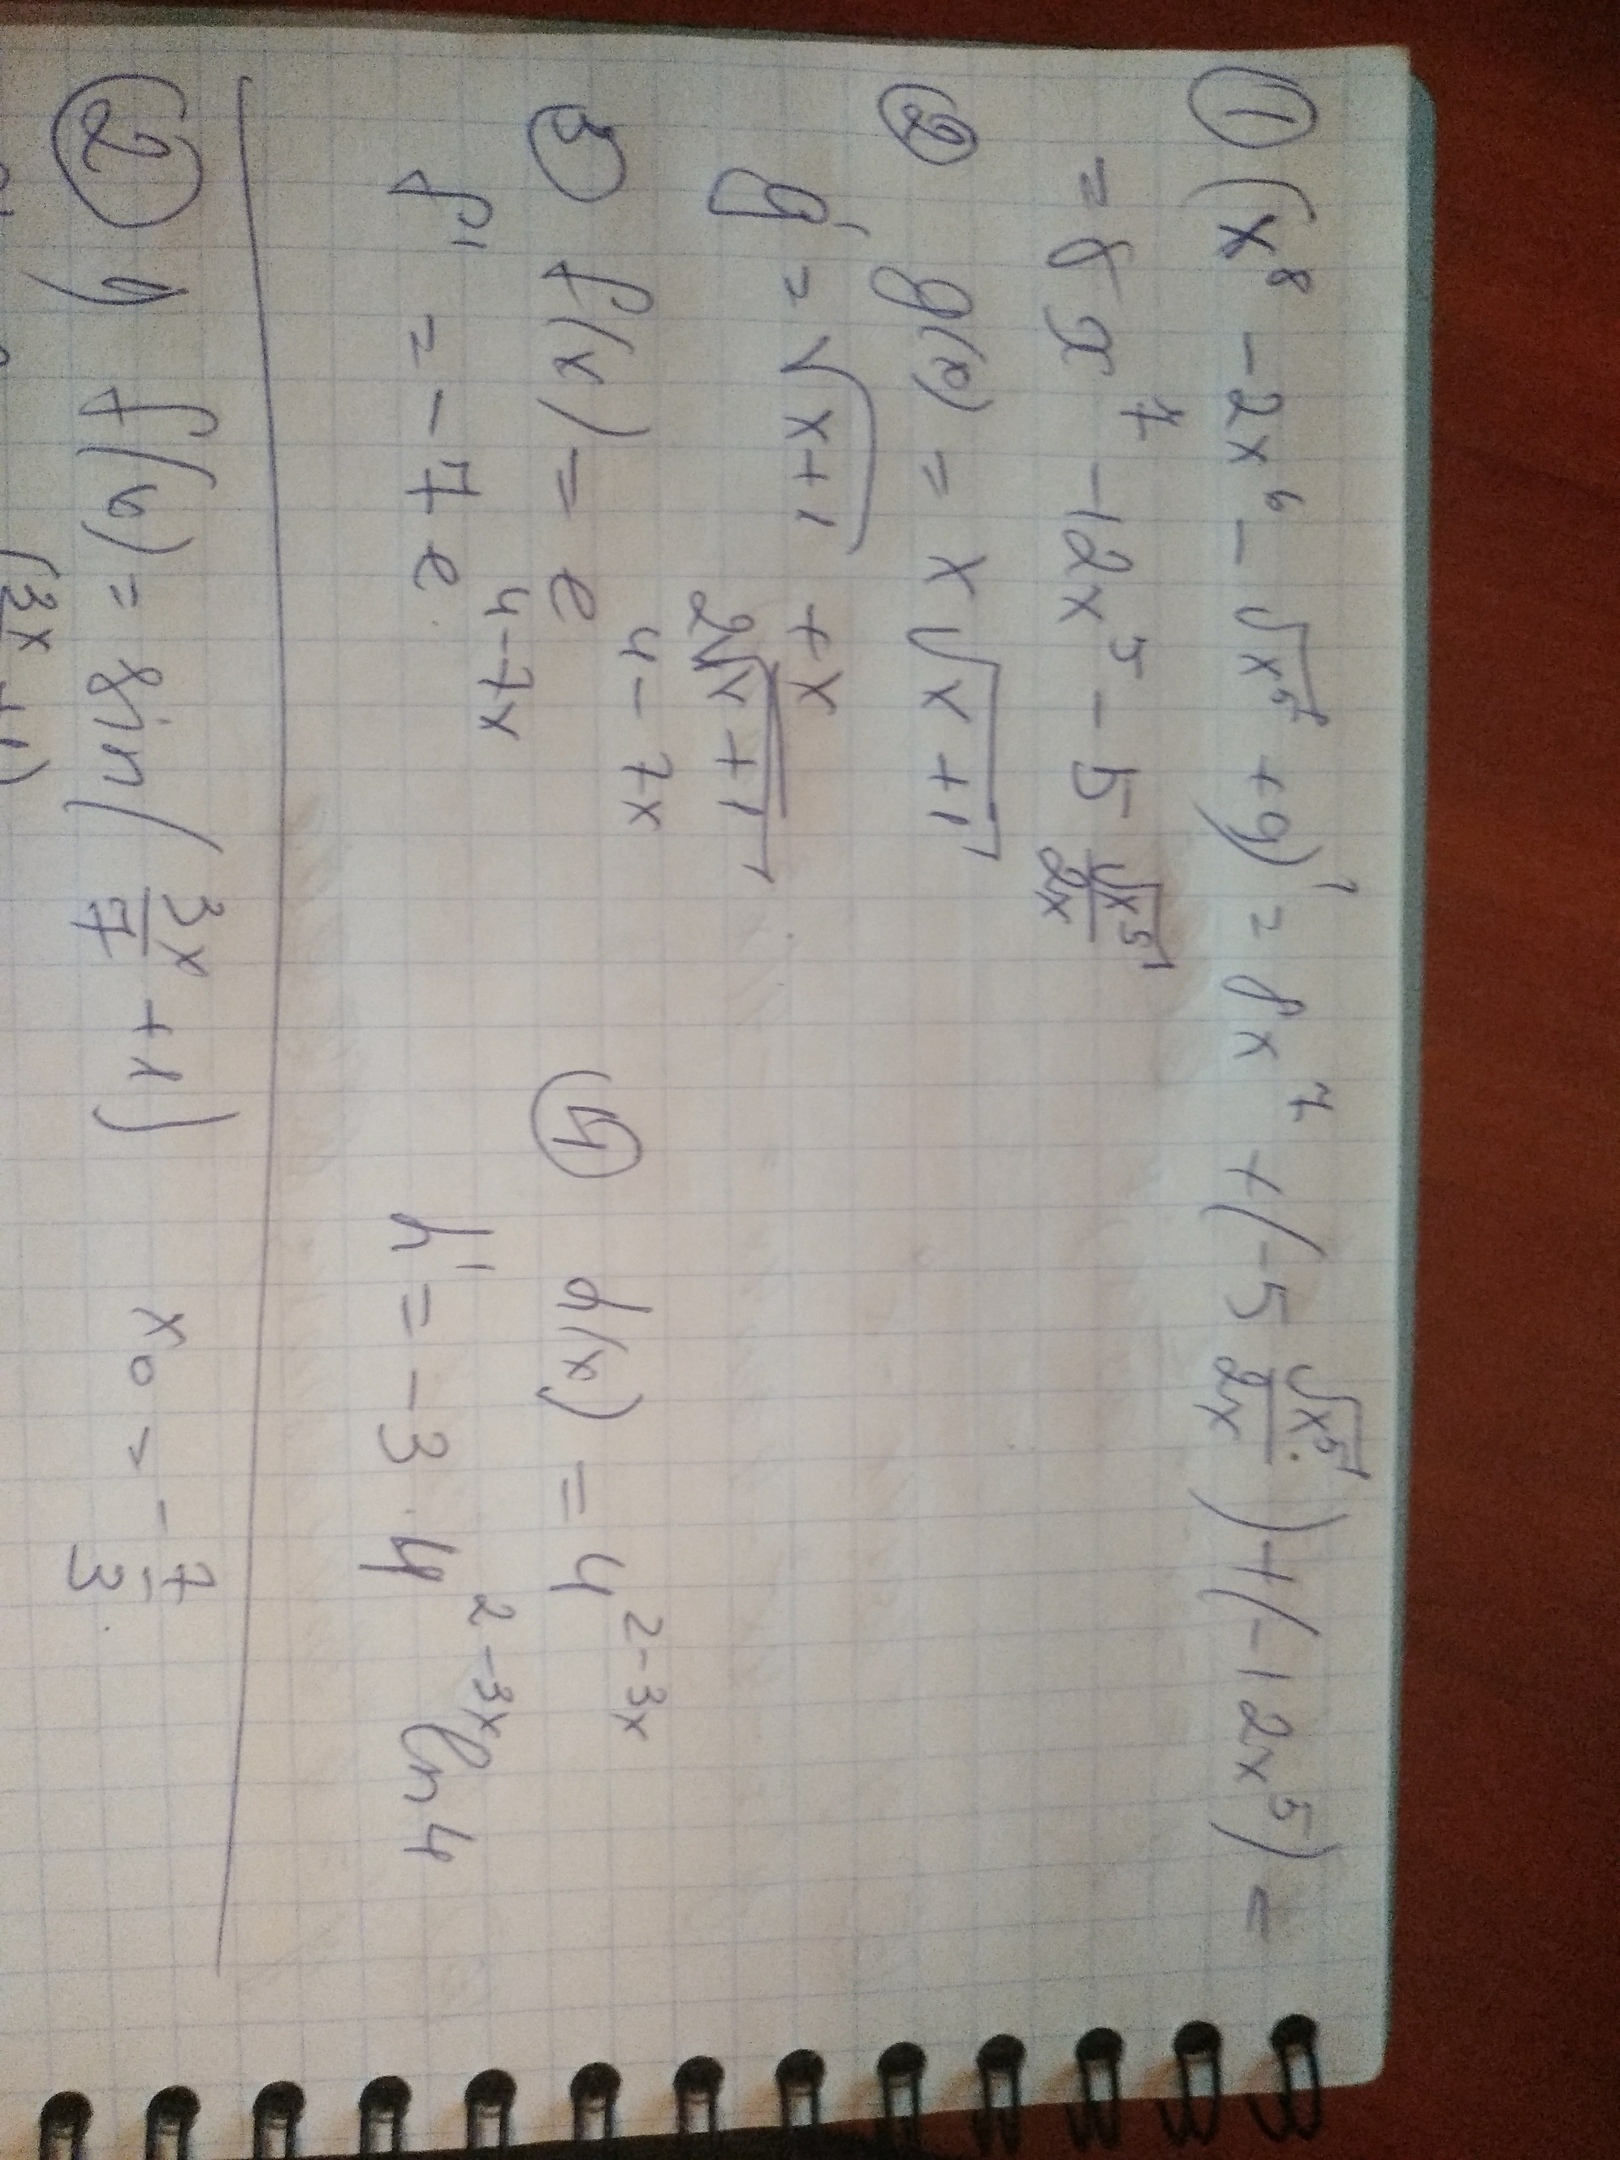 ① (x⁸ - 2x⁶ - √x⁵ + 9)' = 8x⁷ + (-5 √x⁵/2x) + (-12x⁵) =
= 8x⁷ - 12x⁵ - 5 √x⁵/2x
② g(x) = x√x+1
g' = √x+1 + x/2√x+1
f(x) = e⁴⁻⁷ˣ ④ h(x) = 4²⁻³ˣ
f' = -7e⁴⁻⁷ˣ h' = -3·4²⁻³ˣ ln4
② f(x) = sin(3x/7 + 1) x₀ = -7/3